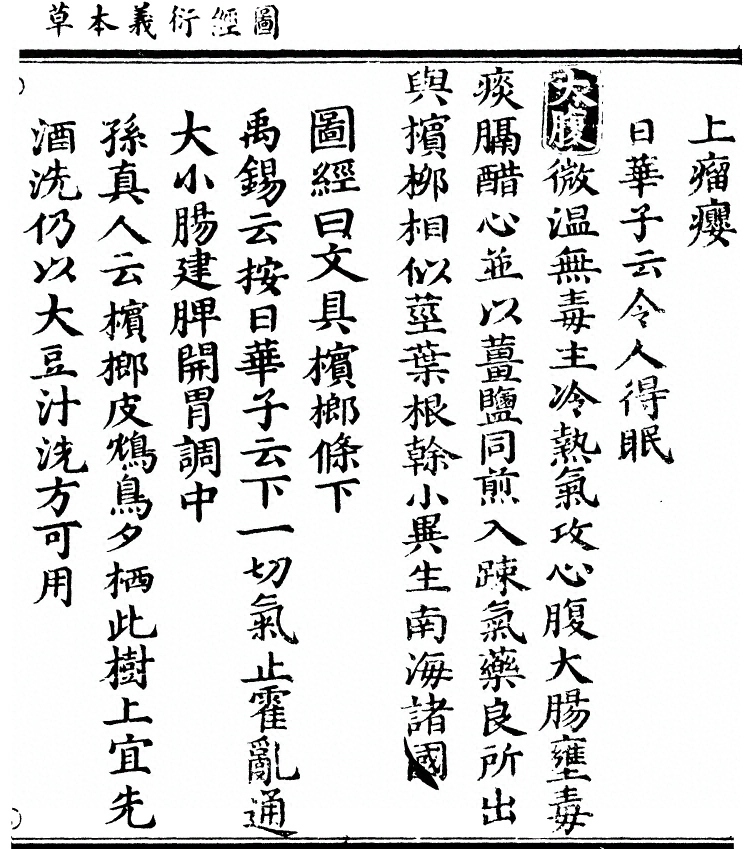 圖經衍義本草
上瘤癭
日華子云令人得眠
大腹微温無毒主冷熱氣攻心腹大腸壅毒
痰膈醋心並以薑鹽同煎入踈氣藥良所出
與檳榔相似莖葉根幹小異生南海諸國
圖經曰文具檳榔條下
禹錫云按日華子云下一切氣止霍亂通
大小腸建脾開胃調中
孫真人云檳榔皮鴆鳥夕栖此樹上宜先
酒洗仍以大豆汁洗方可用